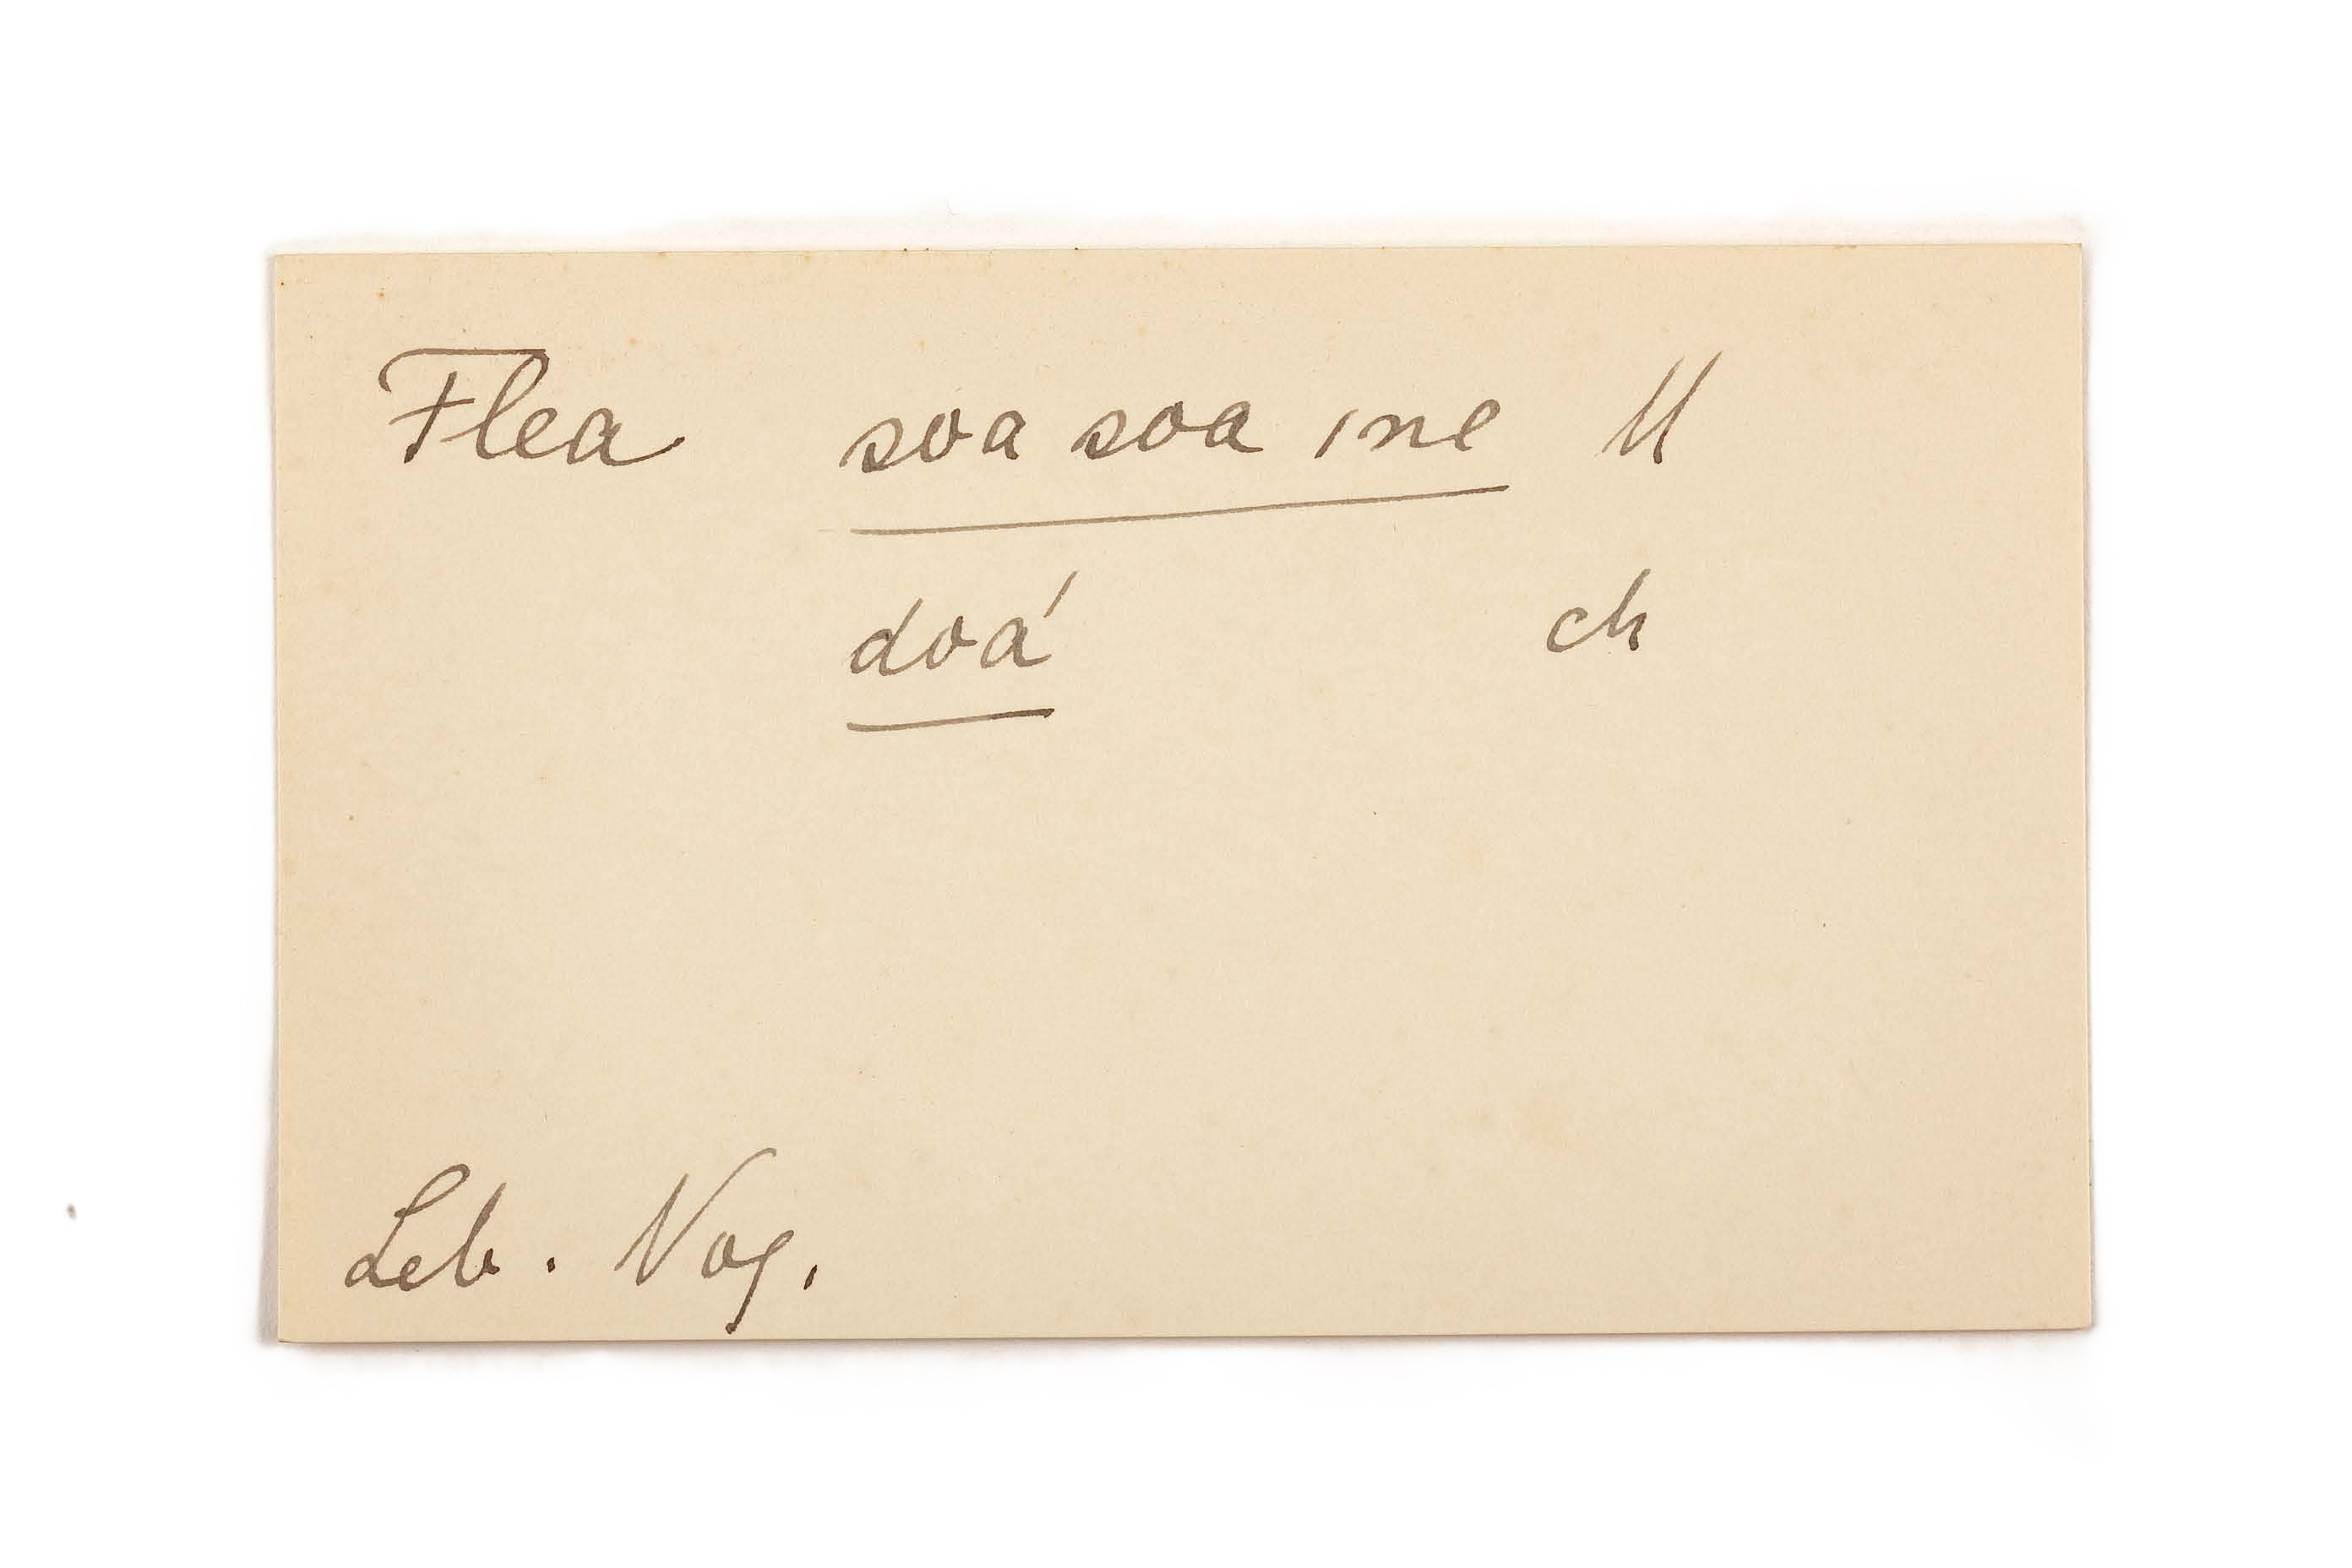 Flea soa soa ine M
doá ch
Leb. Voc.